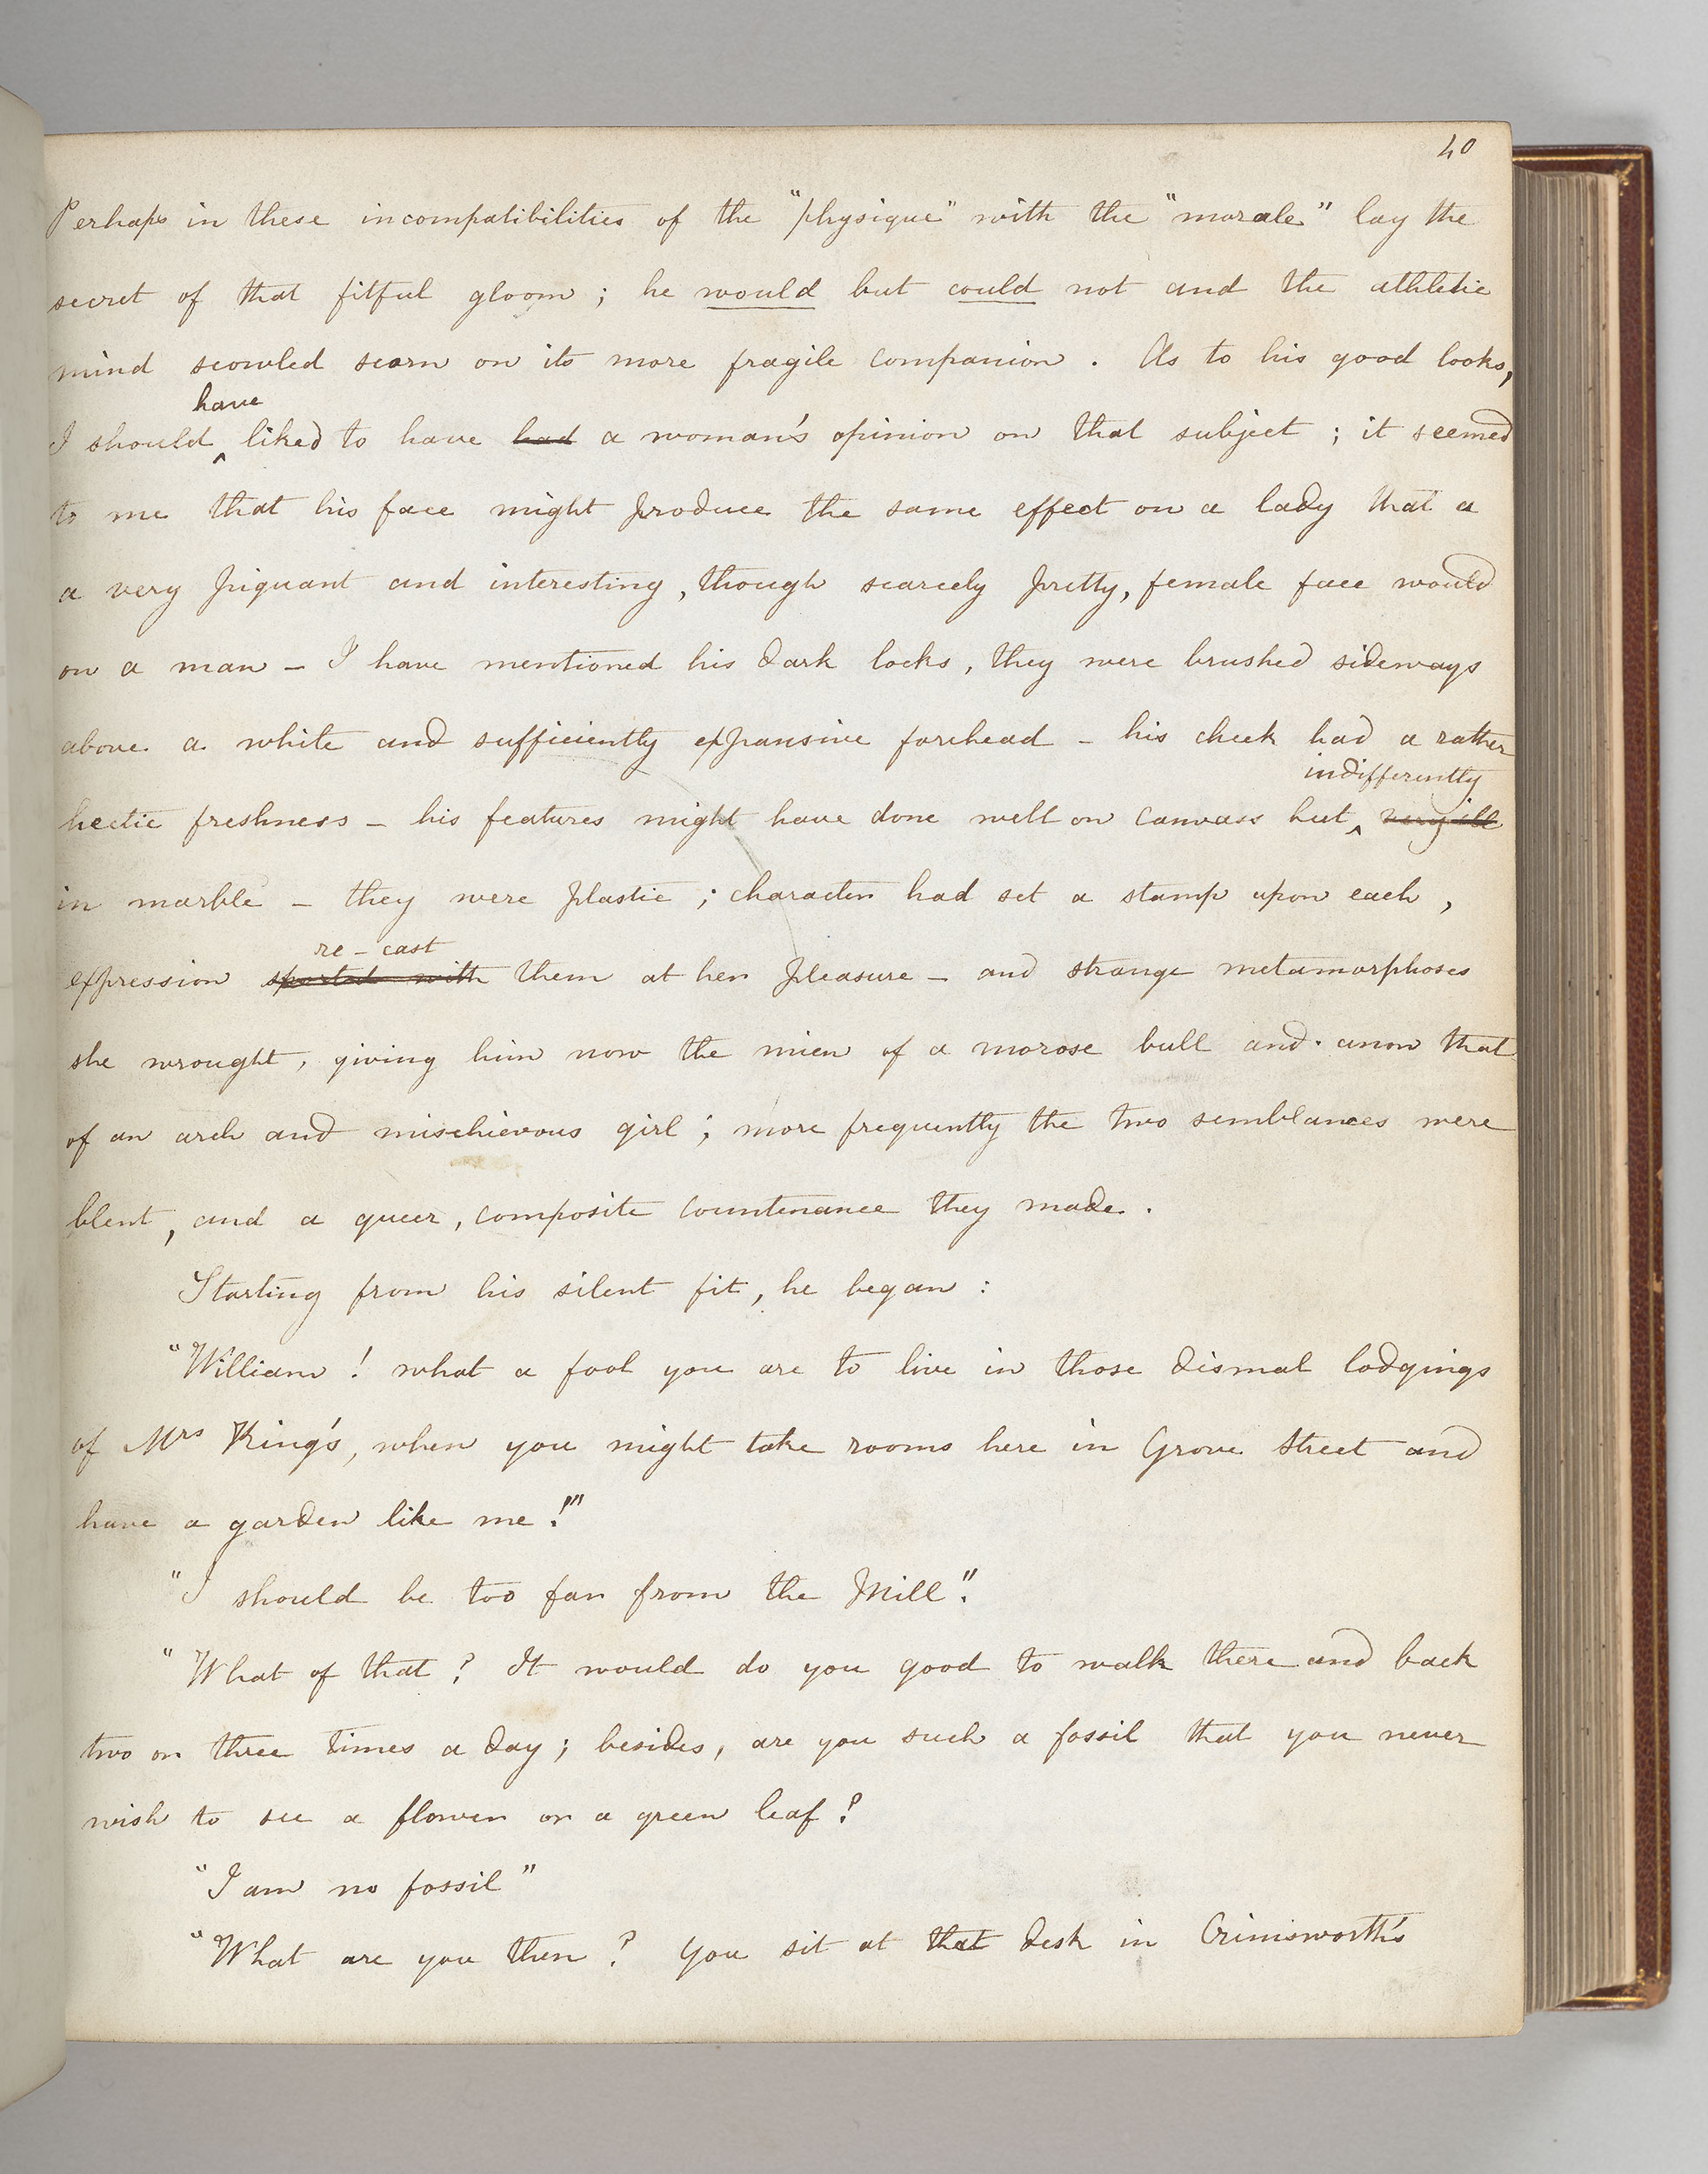 40
Perhaps in these incompatibilities of the "physique" with the "morale" lay the
secret of that fitful gloom ; he would but could not and the athletic
mind scowled scorn on its more fragile companion . As to his good looks,
have
I should ^ liked to have had a woman's opinion on that subject ; it seemed
to me that his face might produce the same effect on a lady that a
a very piquant and interesting , though scarcely pretty, female face would
on a man – I have mentioned his dark locks , they were brushed sideways
above a white and sufficiently expansive forehead – his cheek had a rather
indifferently
hectic freshness – his features might have done well on canvass but ^ very ill
in marble – they were plastic ; character had set a stamp upon each ,
re-cast
expression sported with them at her pleasure – and strange metamorphoses
she wrought , giving him now the mien of a morose bull and anon that
of an arch and mischievous girl ; more frequently the two semblances were
blent , and a queer , composite countenance they made .
Starting from his silent fit , he began :
"William ! what a fool you are to live in those dismal lodgings
of Mrs King's, when you might take rooms here in Grove Street and
have a garden like me !"
"I should be too far from the Mill".
"What of that ? It would do you good to walk there and back
two or three times a day ; besides, are you such a fossil that you never
wish to see a flower or a green leaf ?
"I am no fossil"
"What are you then ? You sit at that desk in Crimsworth's